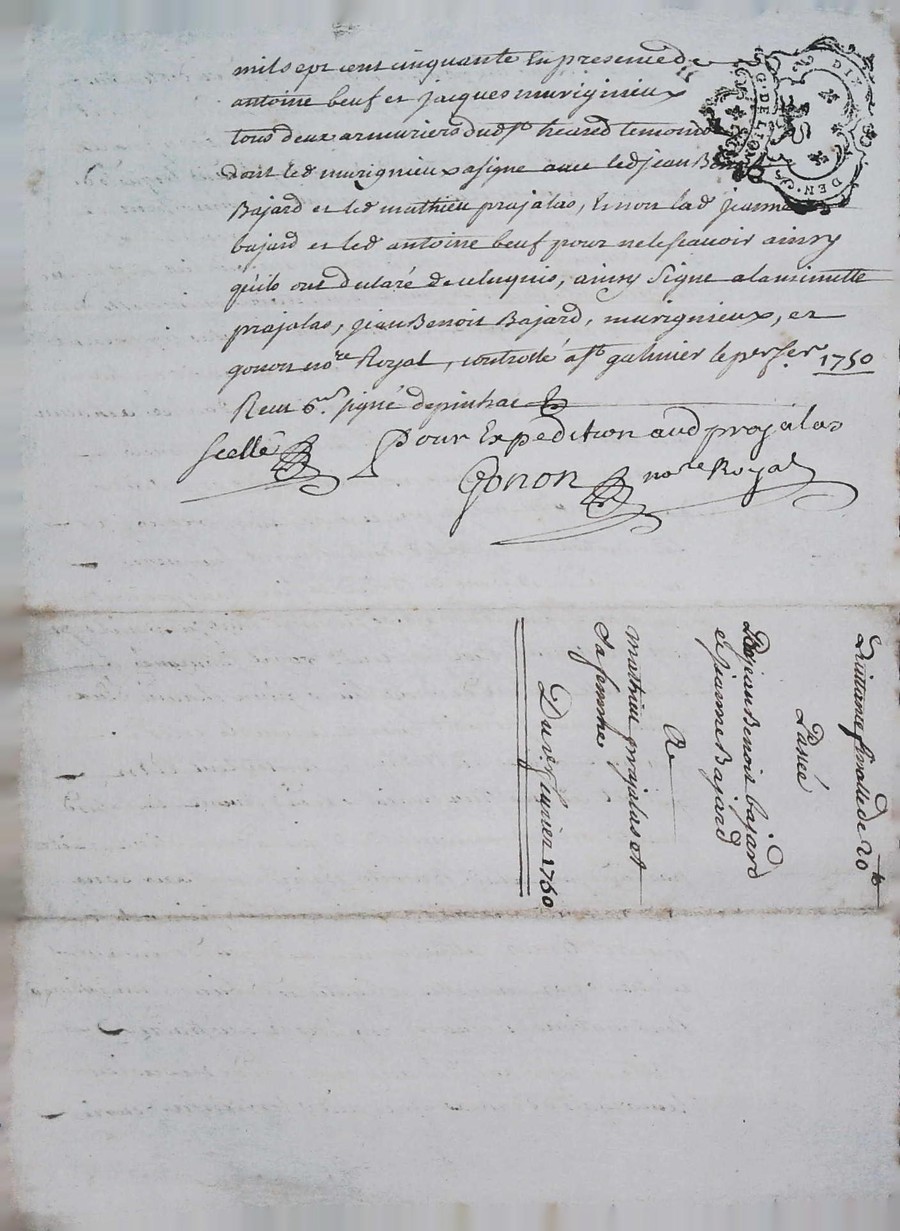 mil sept cent cinquante En presence de
antoine beuf et jacques murignieux
tous deux armuriers dud st heured temoins
dont led murignieux a signe avec led jean Benoit
Bajard et led mathieu prajalas, Et non lad jeanne
bajard et led antoine beuf pour ne le scavoir ainsy
qu'ils ont declaré de ce enquis, ainsy Signé a la minutte
prajalas, jean Benoit Bajard, murignieux, et
gonon nore Royal, controllé a st le per fer 1750
Receu signé depinhac
Scellé Pour Expedition aud prajalas
Gonon nore Royal
G. DE LION
DEN.
DIX
Quittance finalle de 20
Passé
Par jean Benoit bajard
et jeanne Bajard
A
mathieu prajalas et
sa femme
Du fevrier 1750